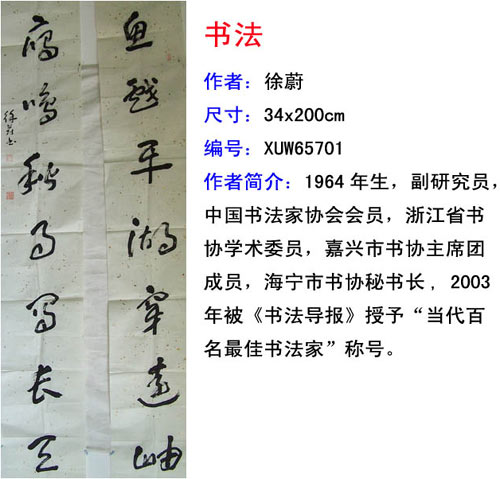 魚戲平湖穿遠岫
鴈鳴秋月寫長天
徐蔚书
书法
作者：徐蔚
尺寸：34x200cm
编号：XUW65701
作者简介：1964 年生，副研究员，
中国书法家协会会员，浙江省书
协学术委员，嘉兴市书协主席团
成员，海宁市书协秘书长，2003
年被《书法导报》授予“当代百
名最佳书法家”称号。